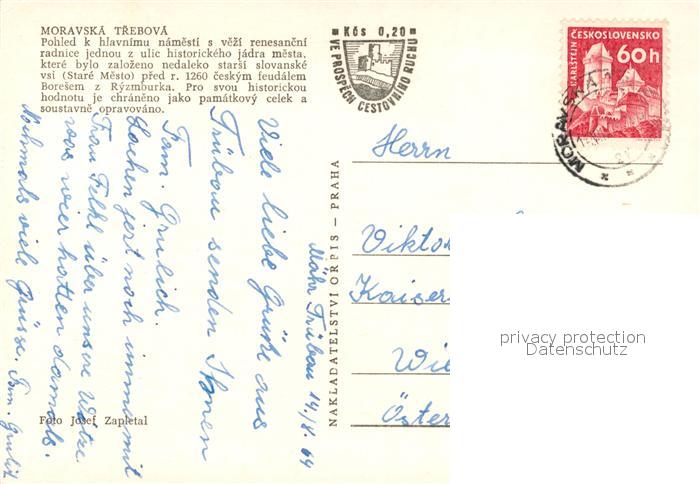 MORAVSKÁ TŘEBOVÁ
Pohled k hlavnímu náměstí s věží renesanční
radnice jednou z ulic historického jádra města,
které bylo založeno nedaleko starší slovanské
vsi (Staré Město) před r. 1260 českým feudálem
Borešem z Rýzmburka. Pro svou historickou
hodnotu je chráněno jako památkový celek a
soustavně opravováno.
Kčs 0,20
VE PROSPĚCH CESTOVNÍHO RUCHU
KARLŠTEJN
ČESKOSLOVENSKO
60h
MORAVSKÁ
Mähr. Trübau 14./8. 64
Viele liebe Grüße aus
Trübau senden Ihnen
Fam. Grulich.
Lachen jezt noch immer mit
Frau Felkl über unsere Witze
was wier hatten damals.
Nochmals viele Grüsse. Fam. Grulich
Foto Josef Zapletal
NAKLADATELSTVÍ ORPIS – PRAHA
Herrn
Viktor
Kaiser
Wie
Öster
privacy protection
Datenschutz